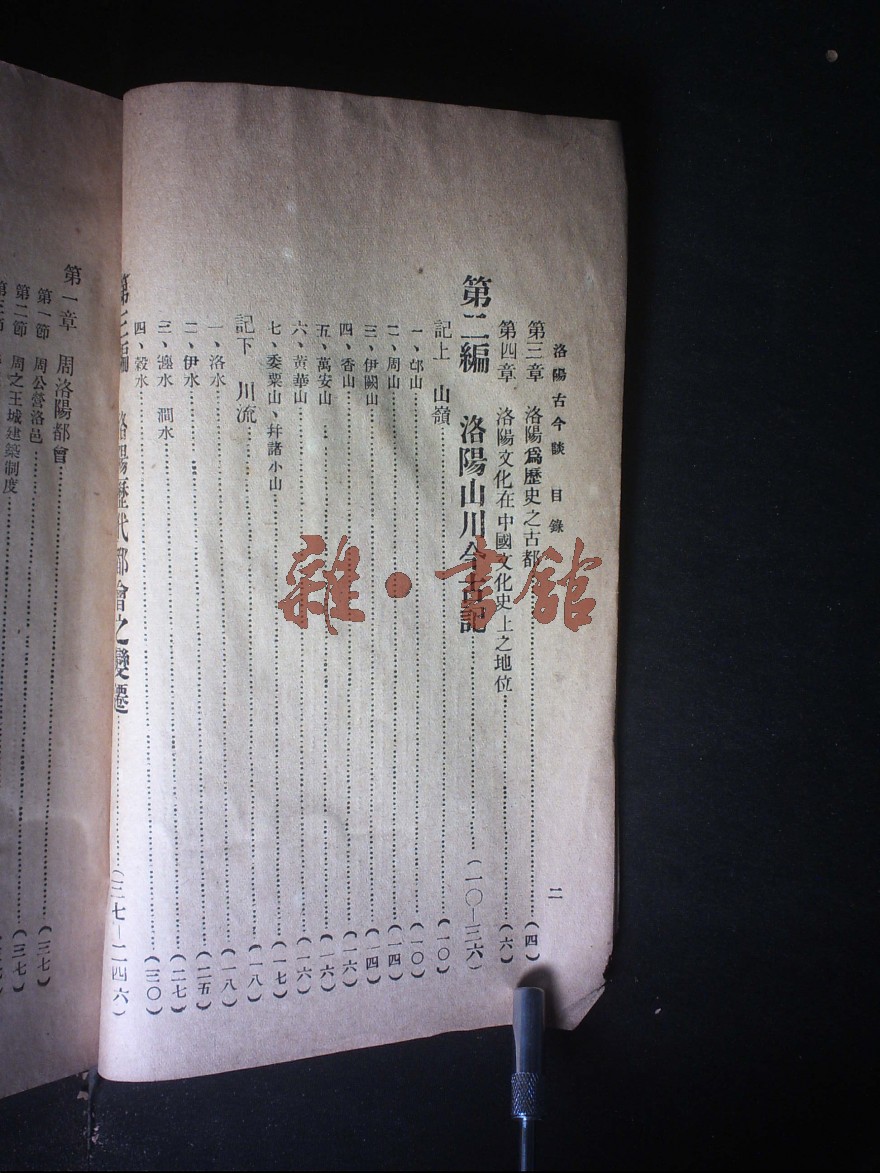 洛陽古今談 目錄 二
第三章 洛陽爲歷史之古都（四）
第四章 洛陽文化在中國文化史上之地位（六）
第二編 洛陽山川今古記（一〇—三六）
記上 山嶺（一〇）
一、邙山（一〇）
二、周山（一四）
三、伊闕山（一四）
四、香山（一六）
五、萬安山（一六）
六、黃華山（一六）
七、委粟山、幷諸小山（一七）
記下 川流（一八）
一、洛水（一八）
二、伊水（二五）
三、瀍水 澗水（二七）
四、穀水（三〇）
第三編 洛陽歷代都會之變遷（三七—二四六）
第一章 周洛陽都會（三七）
第一節 周公營洛邑（三七）
第二節 周之王城建築制度
雜·書館